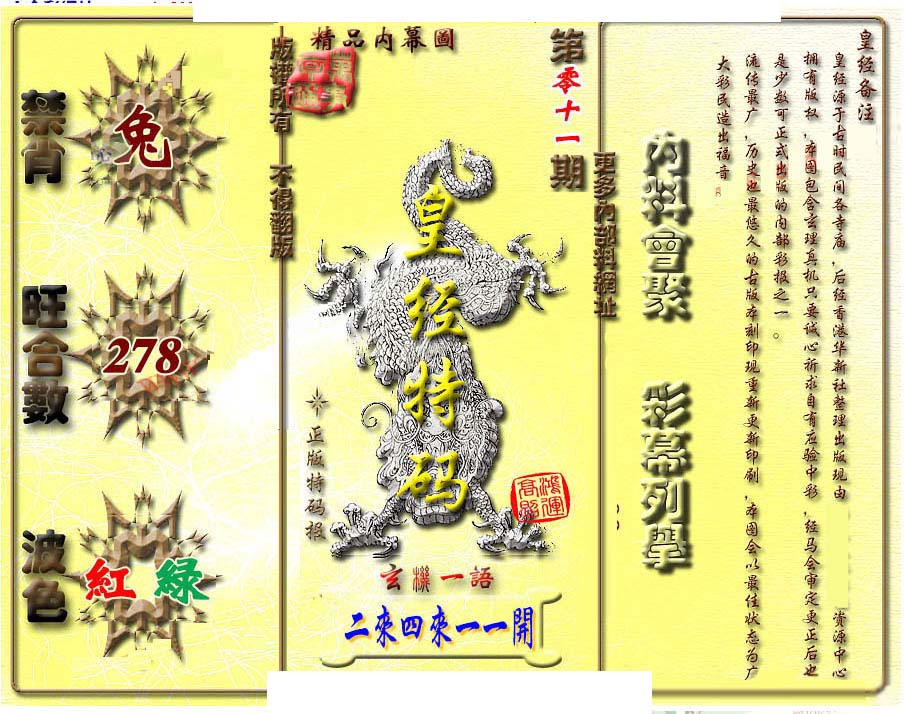 精品内幕圖
第零十一期
版權所有 不得翻版
禁肖
兔
旺合數
278
波色
紅 綠
皇经特码
正版特码报
鴻運高照
玄機一語
二來四來一一開
更多內部料網址
內料會聚
彩幕列舉
皇经备注
皇经源于古时民间各寺庙,后经香港华新社整理出版现由 资源中心
拥有版权,本图包含玄理真机只要诚心祈求自有应验中彩,经马会审定更正后也
是少数可正式出版的内部彩报之一。
流传最广,历史也最悠久的古版本刻印现重新更新印刷,本图会以最佳状态为广
大彩民造出福音